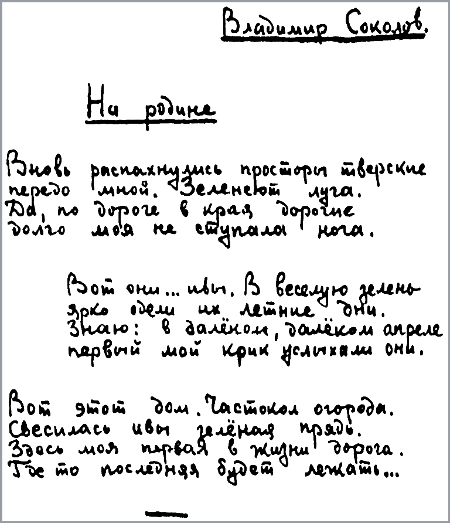 Владимир Соколов.
На родине
Вновь распахнулись просторы тверские
передо мной. Зеленеют луга.
Да, по дороге в края дорогие
долго моя не ступала нога.
Вот они... ивы. В веселую зелень
ярко одели их летние дни.
Знаю: в далёком, далёком апреле
первый мой крик услыхали они.
Вот этот дом. Частокол огорода.
Свесилась ивы зелёная прядь.
Здесь моя первая в жизни дорога.
Где то последняя будет лежать...